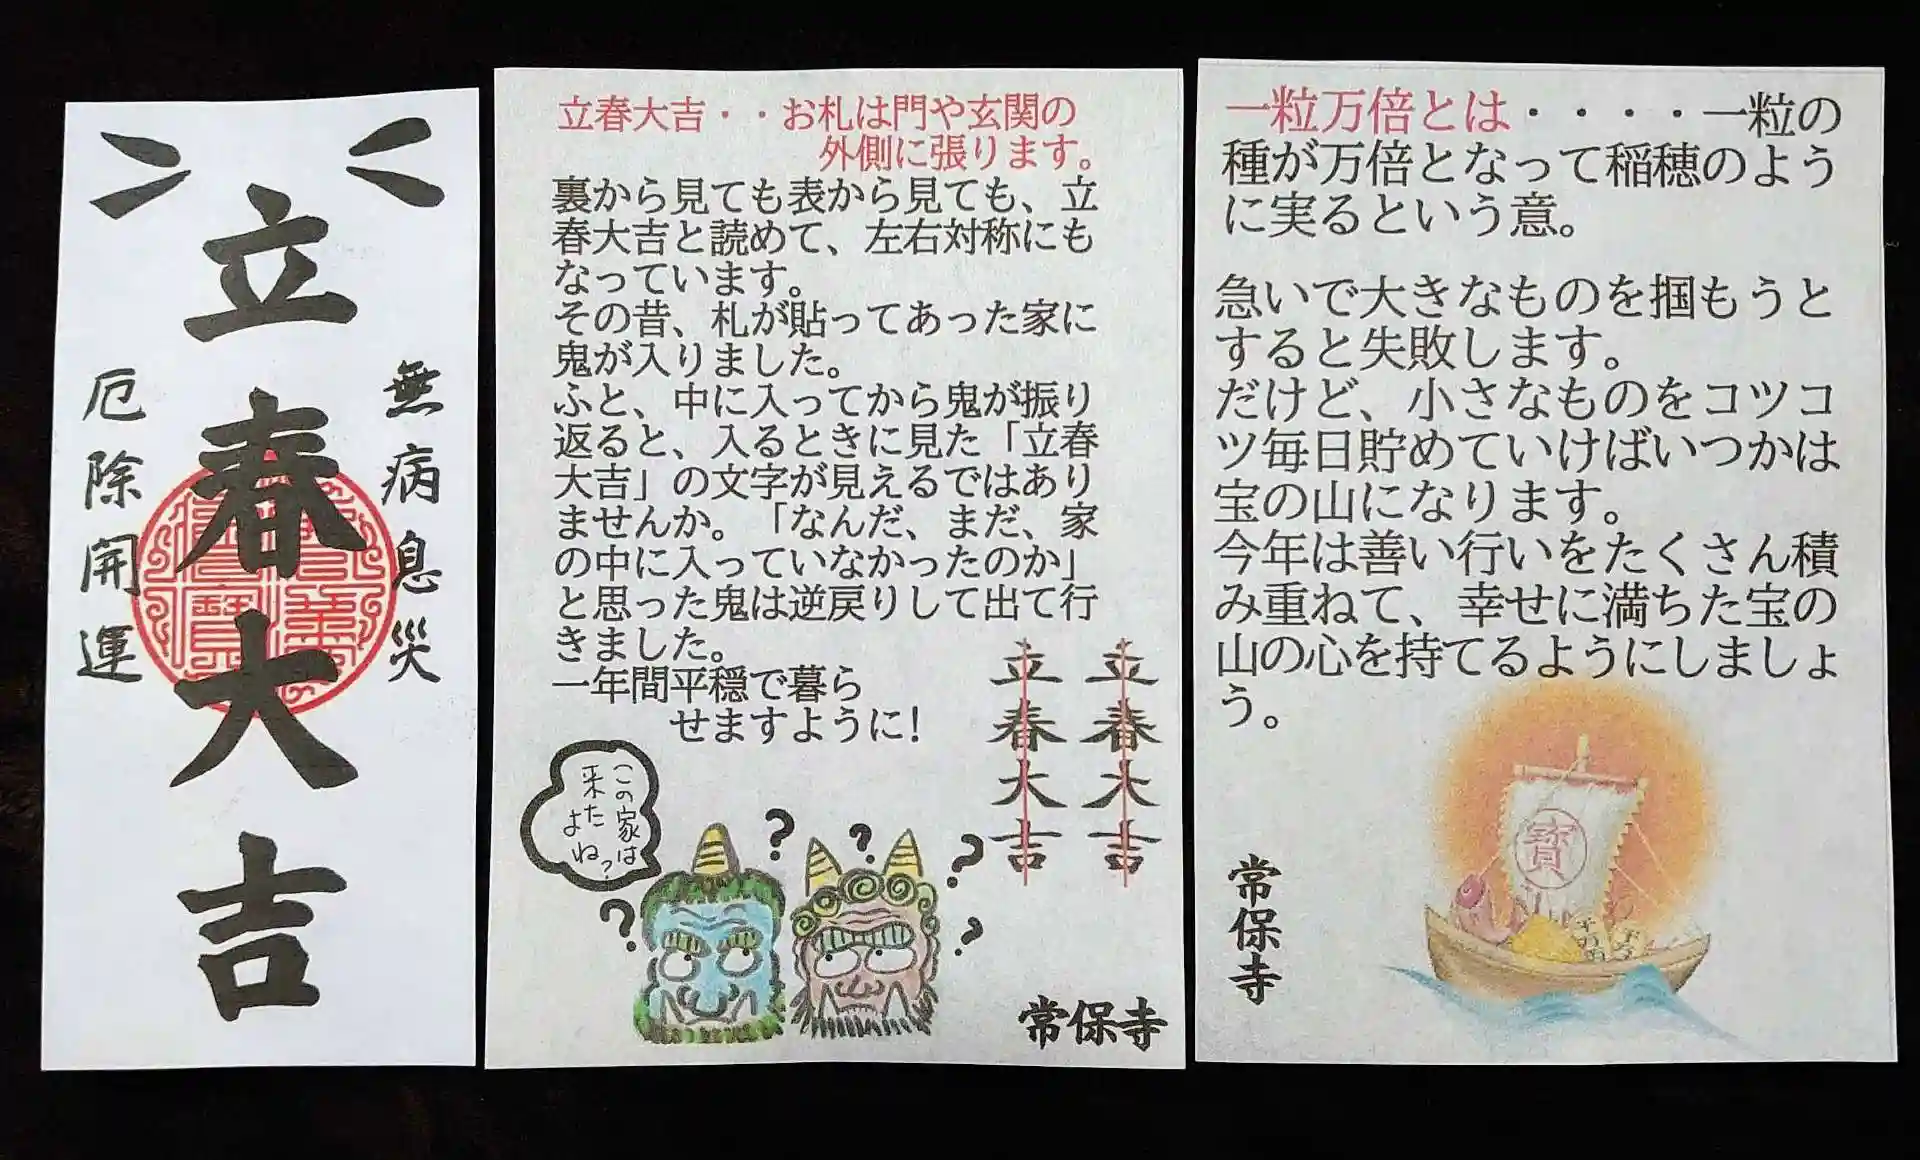 立春大吉
無病息災
厄除開運
立春大吉・・お札は門や玄関の
外側に張ります。
裏から見ても表から見ても、立
春大吉と読めて、左右対称にも
なっています。
その昔、札が貼ってあった家に
鬼が入りました。
ふと、中に入ってから鬼が振り
返ると、入るときに見た「立春
大吉」の文字が見えるではあり
ませんか。「なんだ、まだ、家
の中に入っていなかったのか」
と思った鬼は逆戻りして出て行
きました。
一年間平穏で暮ら
せますように！
立春大吉
立春大吉
この家は
来た
よね？
? ? ? ? ?
常保寺
一粒万倍とは・・・・一粒の
種が万倍となって稲穂のよう
に実るという意。
急いで大きなものを掴もうと
すると失敗します。
だけど、小さなものをコツコ
ツ毎日貯めていけばいつかは
宝の山になります。
今年は善い行いをたくさん積
み重ねて、幸せに満ちた宝の
山の心を持てるようにしましょ
う。
寳
常保寺